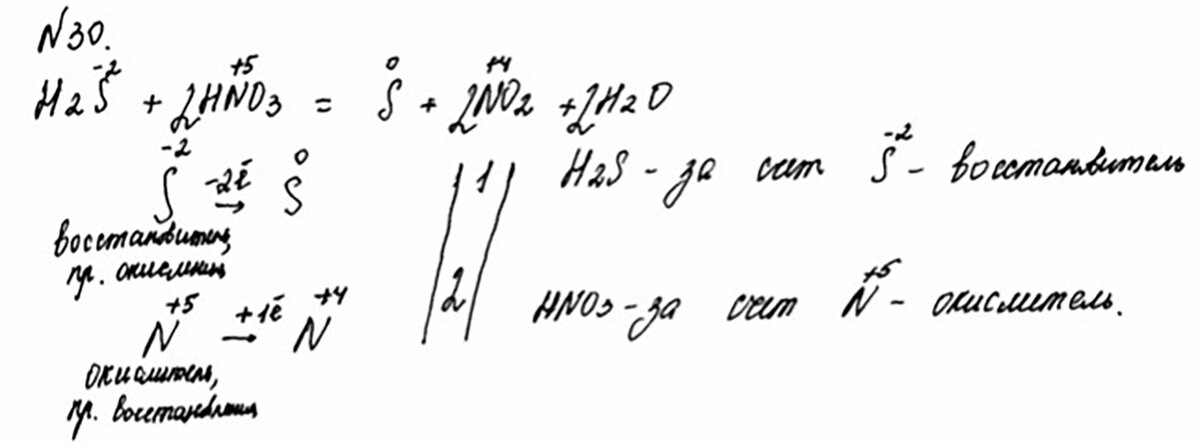 N30.
H2S⁻² + 2HN⁺⁵O3 = S⁰ + 2N⁺⁴O2 + 2H2O
S⁻² -2ē → S⁰ | 1 | H2S - за счет S⁻² - восстановитель
восстановитель,
пр. окисления
N⁺⁵ +1ē → N⁺⁴ | 2 | HNO3 - за счет N⁺⁵ - окислитель.
окислитель,
пр. восстановления